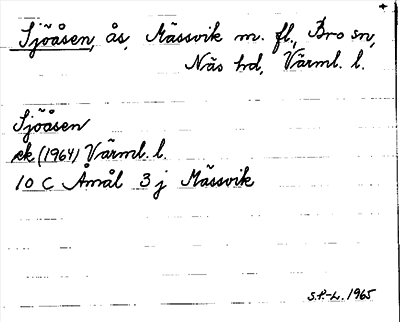 Sjöåsen, ås, Mässvik m. fl., Bro sn,
Näs hd, Värml. l.
Sjöåsen
ek (1964) Värml. l.
10 C Åmål 3 j Mässvik
S.P.-L. 1965